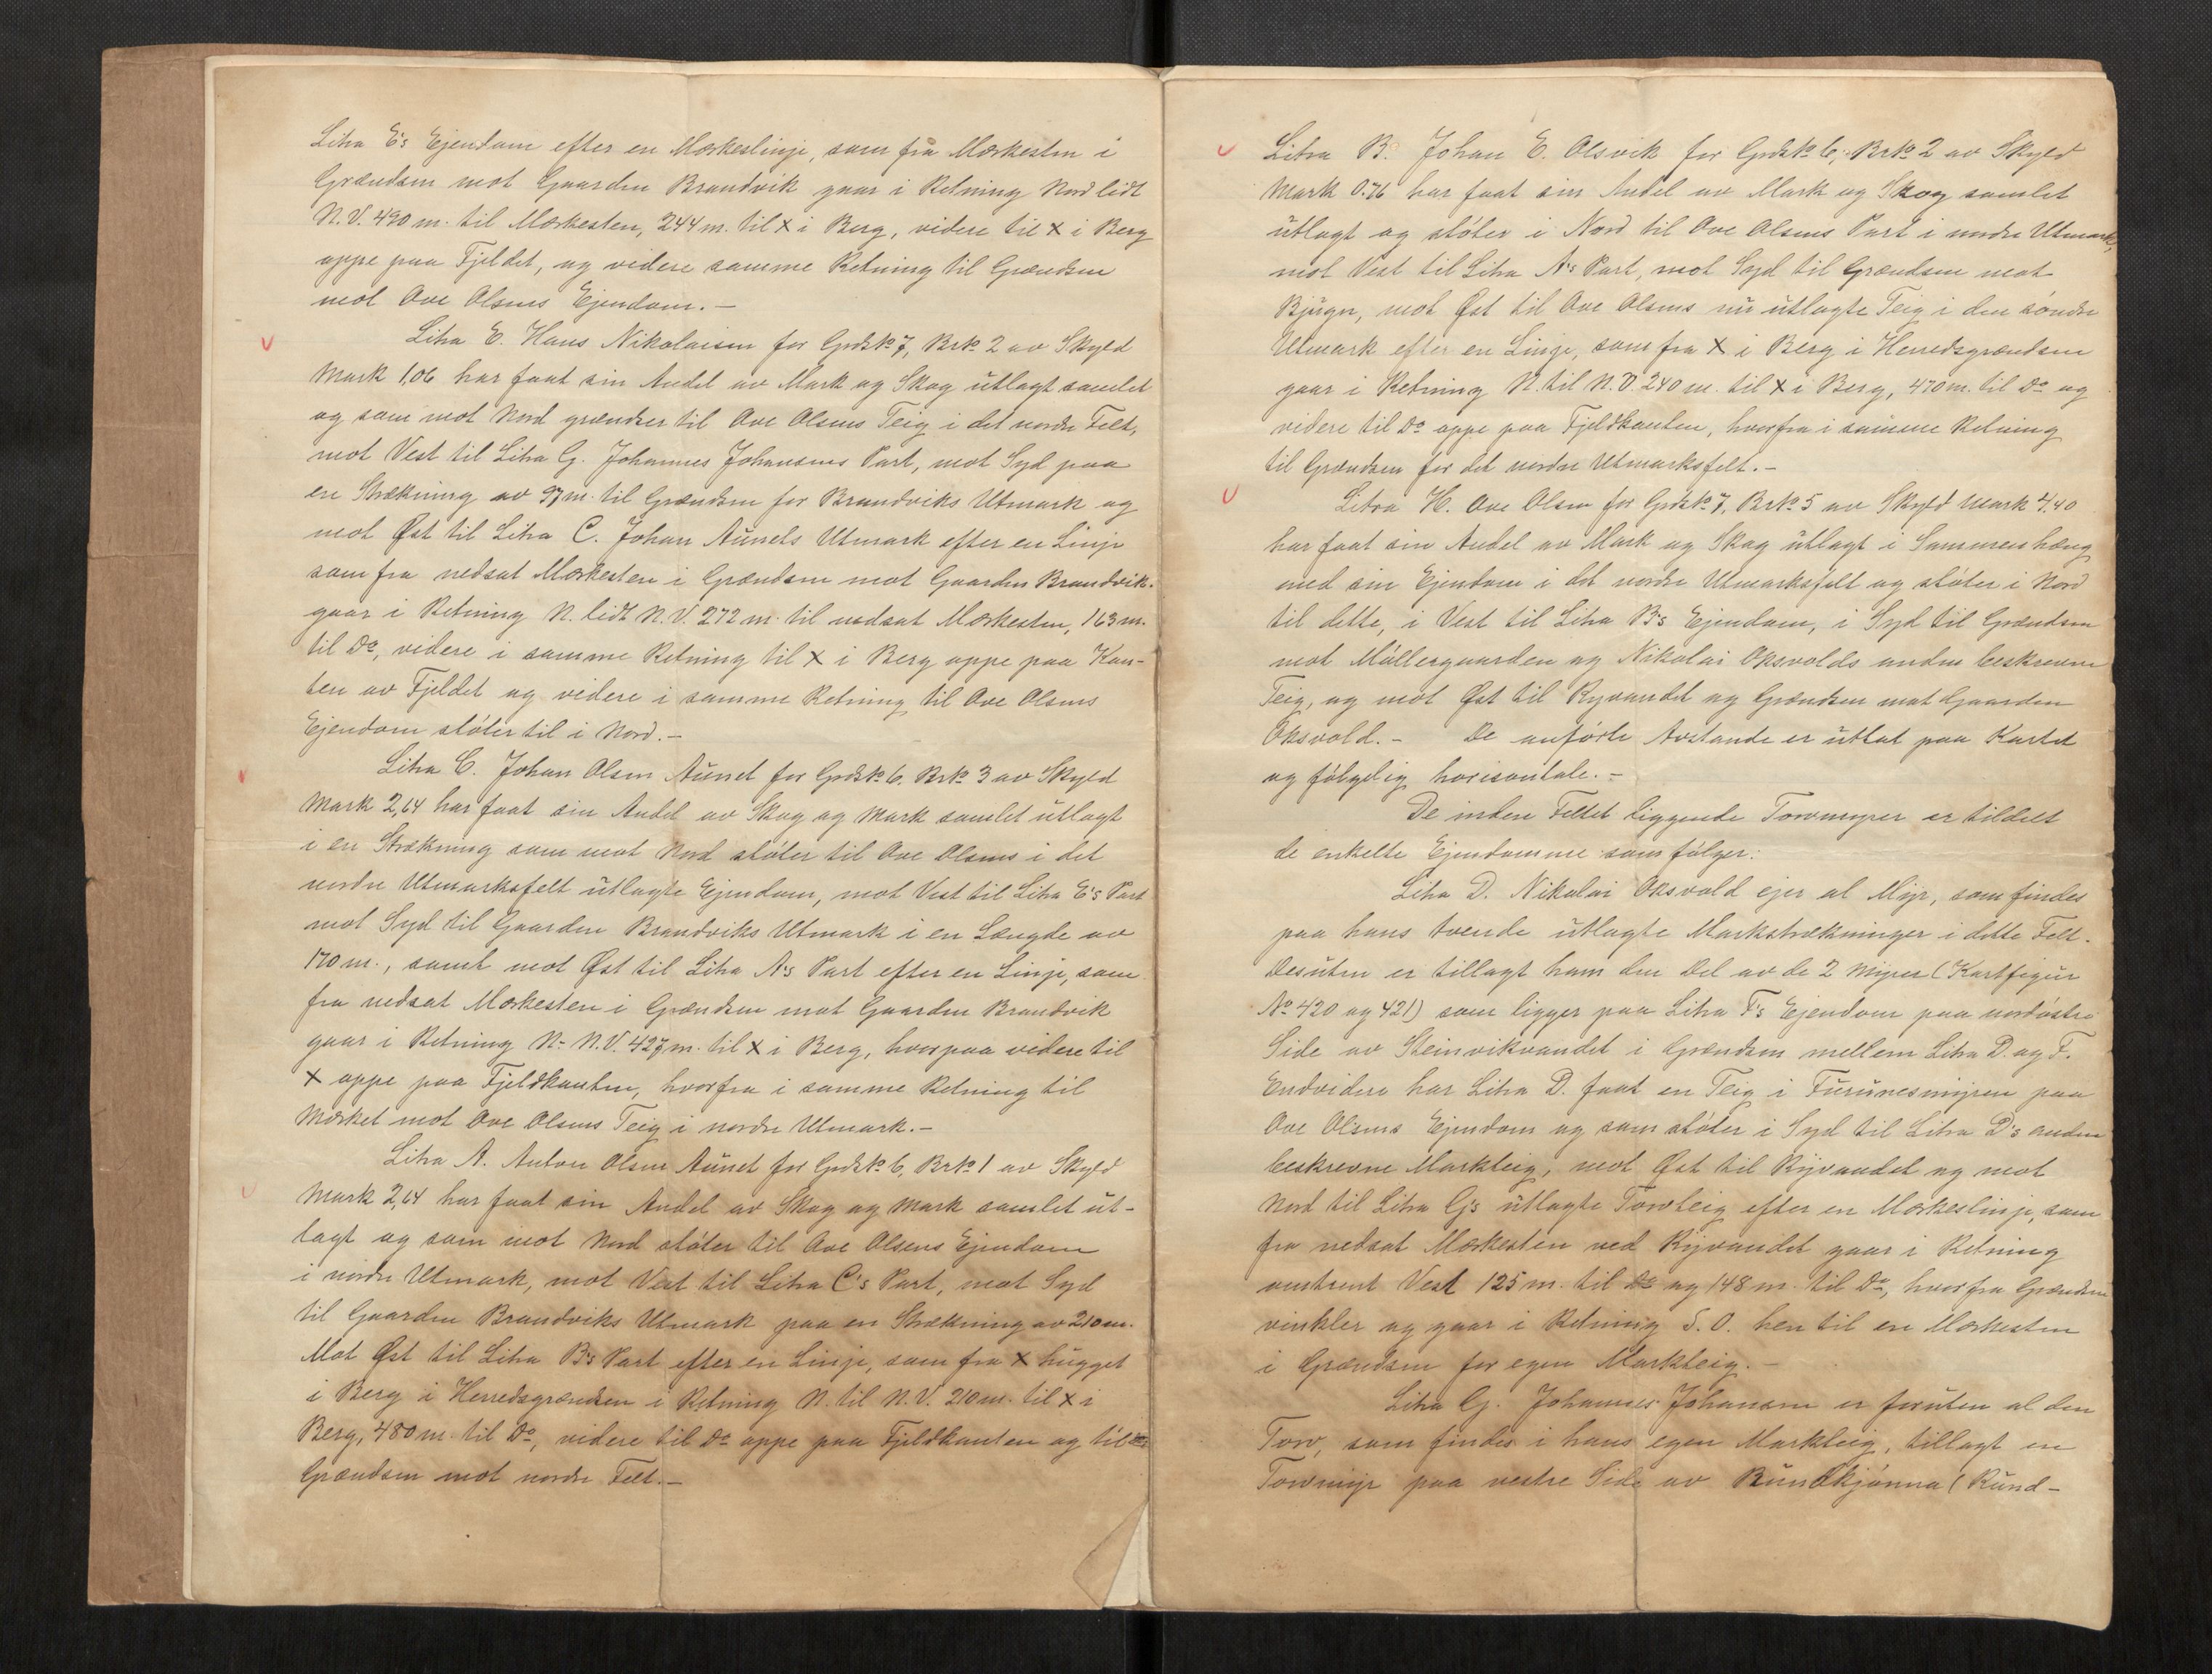 Litra E's Ejendom efter en Mærkeslinje, som fra Mærkesten i
Grændsen mot Gaarden Brandvik gaar i Retning Nord lidt
N.V. 490 m. til Mærkesten, 244 m. til X i Berg, videre til X i Berg
oppe paa Fjeldet, og videre samme Retning til Grændsen
mot Ove Olsens Ejendom.-
Litra E. Hans Nikolaisen for Grdsk№ 7, Brk№ 2 av Skyld
Mark 1,06 har faat sin Andel av Mark og Skog utlagt samlet
og som mot Nord grændser til Ove Olsens Teig i det nordre Felt,
mot Vest til Litra G. Johannes Johansens Part, mot Syd paa
en Strækning av 97 m. til Grændsen for Brandviks Utmark og
mot Øst til Litra C. Johan Aunets Utmark efter en Linje
som fra nedsat Mærkesten i Grændsen mot Gaarden Brandvik
gaar i Retning N. lidt N.V. 272 m. til nedsat Mærkesten, 163 m.
til Do, videre i samme Retning til X i Berg oppe paa Kan-
ten av Fjeldet og videre i samme Retning til Ove Olsens
Ejendom støter til i Nord.-
Litra C. Johan Olsen Aunet for Grdsk№ 6. Brk№ 3 av Skyld
Mark 2,64 har faat sin Andel av Skog og Mark samlet utlagt
i en Strækning som mot Nord støter til Ove Olsens i det
nordre Utmarksfelt utlagte Ejendom, mot Vest til Litra E's Part
mot Syd til Gaarden Brandviks Utmark i en Længde av
170 m., samt mot Øst til Litra A's Part efter en Linje, som
fra nedsat Mærkesten i Grændsen mot Gaarden Brandvik
gaar i Retning N- N.V. 427 m. til X i Berg, hvorpaa videre til
X oppe paa Fjeldkanten, hvorfra i samme Retning til
Mærket mot Ove Olsens Teig i nordre Utmark.-
Litra A. Anton Olsen Aunet for Grdsk№ 6, Brk№ 1 av Skyld
Mark 2,64 har faat sin Andel av Skog og Mark samlet ut-
lagt og som mot Nord støter til Ove Olsens Ejendom
i nordre Utmark, mot Vest til Litra C's Part, mot Syd
til Gaarden Brandviks Utmark paa en Strækning av 210 m.
Mot Øst til Litra B's Part efter en Linje, som fra X hugget
i Berg i Herredsgrændsen i Retning N. til N.V. 210 m. til X i
Berg, 480 m. til Do, videre til Do oppe paa Fjeldkanten og til
Grændsen mot nordre Felt.-
Litra B. Johan E. Olsvik for Grdsk№ 6, Brk№ 2 av Skyld
Mark 0.76 har faat sin Andel av Mark og Skog samlet
utlagt og støter i Nord til Ove Olsens Part i nordre Utmark,
mot Vest til Litra A's Part, mot Syd til Grændsen mot
Bjugn, mot Øst til Ove Olsens nu utlagte Teig i den søndre
Utmark efter en Linje, som fra X i Berg i Herredsgrændsen
gaar i Retning N. til N.V. 240 m. til X i Berg, 470 m. til Do og
videre til Do oppe paa Fjeldkanten, hvorfra i samme Retning
til Grændsen for det nordre Utmarksfelt.-
Litra H. Ove Olsen for Grdsk№ 7, Brk№ 5 av Skyld Mark 4.40
har faat sin Andel av Mark og Skog utlagt i Sammenhæng
med sin Ejendom i det nordre Utmarksfelt og støter i Nord
til dette, i Vest til Litra B's Ejendom, i Syd til Grændsen
mot Møllergaarden og Nikolai Oksvolds anden beskrevne
Teig, og mot Øst til Ryvandet og Grændsen mot Gaarden
Oksvold.- De anførte Avstande er uttat paa Kartet
og følgelig horisontale.-
De inden Feltet liggende Torvmyrer er tildelt
de enkelte Ejendomme som følger:
Litra D. Nikolai Oksvold ejer al Myr, som findes
paa hans tvende utlagte Markstrækninger i dette Felt.
Desuten er tillagt ham den Del av de 2 Myrer (Kartfigur
№ 420 og 421) som ligger paa Litra F's Ejendom paa nordøstre
Side av Steinvikvandet i Grændsen mellem Litra D. og F.
Endvidere har Litra D. faat en Teig i Furunesmyren paa
Ove Olsens Ejendom og som støter i Syd til Litra D's anden
beskrevne Markteig, mot Øst til Ryvandet og mot
Nord til Litra G's utlagte Torvteig efter en Mærkeslinje, som
fra nedsat Mærkesten ved Ryvandet gaar i Retning
omtrent Vest 125 m. til Do og 148 m. til Do, hvorfra Grændsen
vinkler og gaar i Retning S.O. hen til en Mærkesten
i Grændsen for egen Markteig.-
Litra G. Johannes Johansen er foruten al den
Torv, som findes i hans egen Markteig, tillagt en
Torvmyr paa vestre Side av Rundkjønna (Rund-